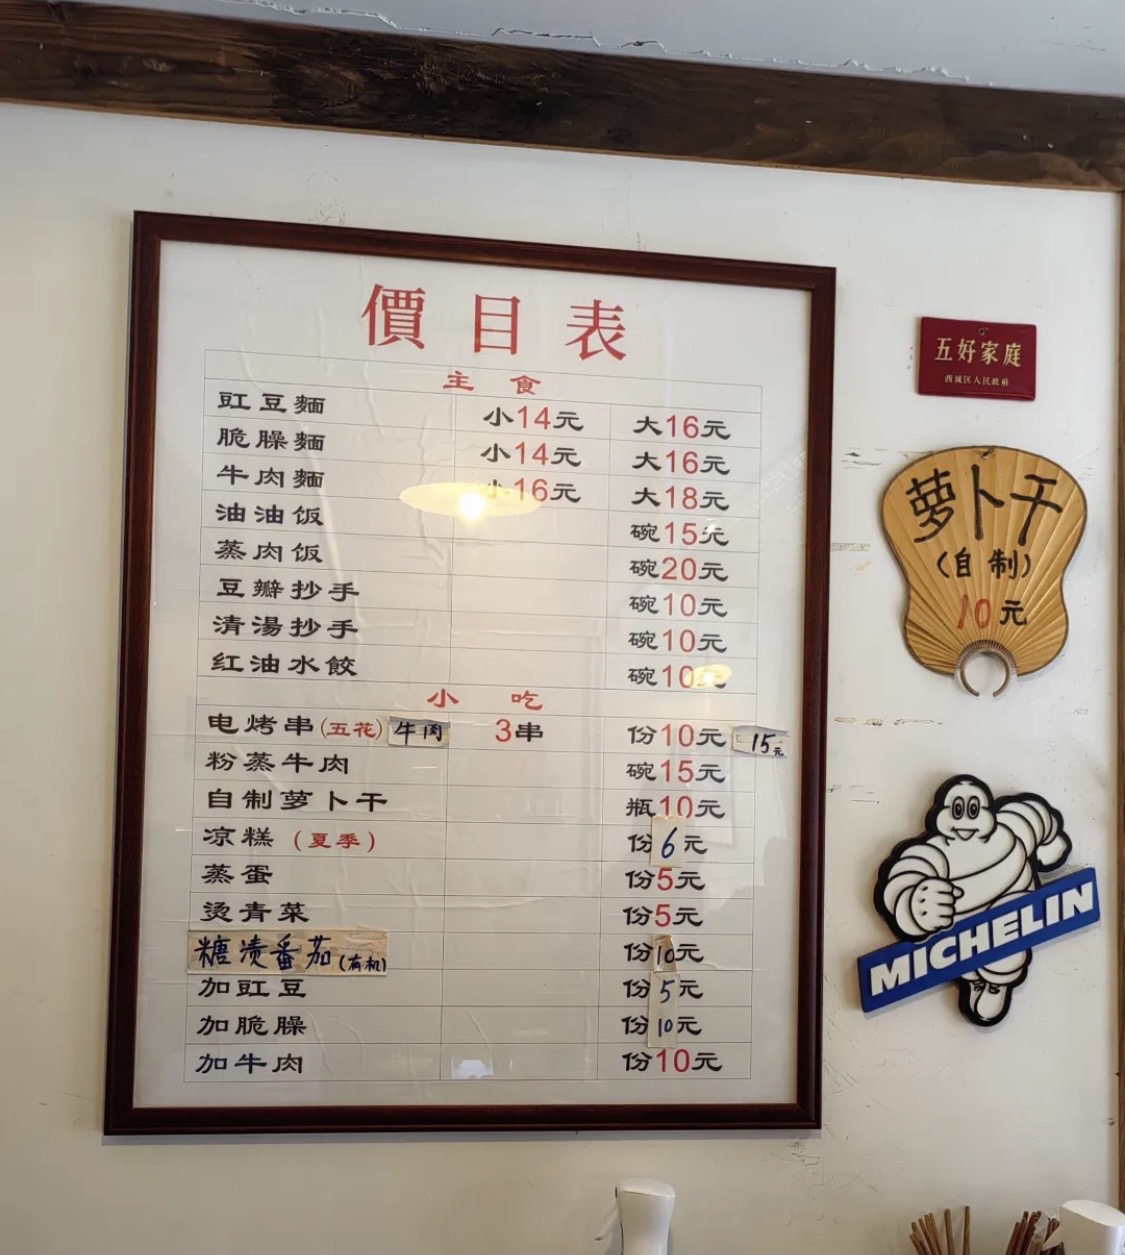 價目表
主食
豇豆麵 小14元 大16元
脆臊麵 小14元 大16元
牛肉麵 小16元 大18元
油油饭 碗15元
蒸肉饭 碗20元
豆瓣抄手 碗10元
清湯抄手 碗10元
红油水餃 碗10元
小吃
电烤串(五花) 牛肉 3串 份10元 15元
粉蒸牛肉 碗15元
自制萝卜干 瓶10元
凉糕 (夏季) 份6元
蒸蛋 份5元
烫青菜 份5元
糖渍番茄(有机) 份10元
加豇豆 份5元
加脆臊 份10元
加牛肉 份10元
五好家庭
西城区人民政府
萝卜干
(自制)
10元
MICHELIN